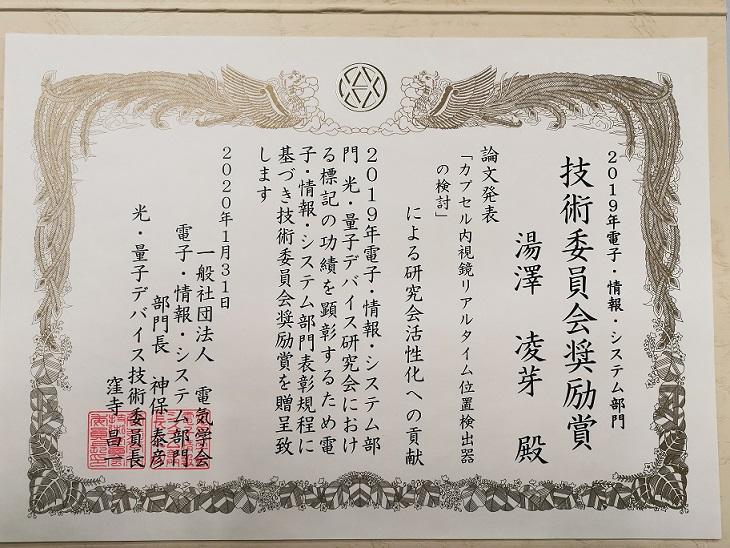 2019年電子・情報・システム部門
技術委員会奨励賞
湯澤 凌芽 殿
論文発表
「カプセル内視鏡リアルタイム位置検出器
の検討」
による研究会活性化への貢献
2019年電子・情報・システム部
門 光・量子デバイス研究会におけ
る標記の功績を顕彰するため電
子・情報・システム部門表彰規程に
基づき技術委員会奨励賞を贈呈致
します
2020年1月31日
一般社団法人 電気学会
電子・情報・システム部門
部門長 神保 泰彦
光・量子デバイス技術委員長
窪寺 昌一